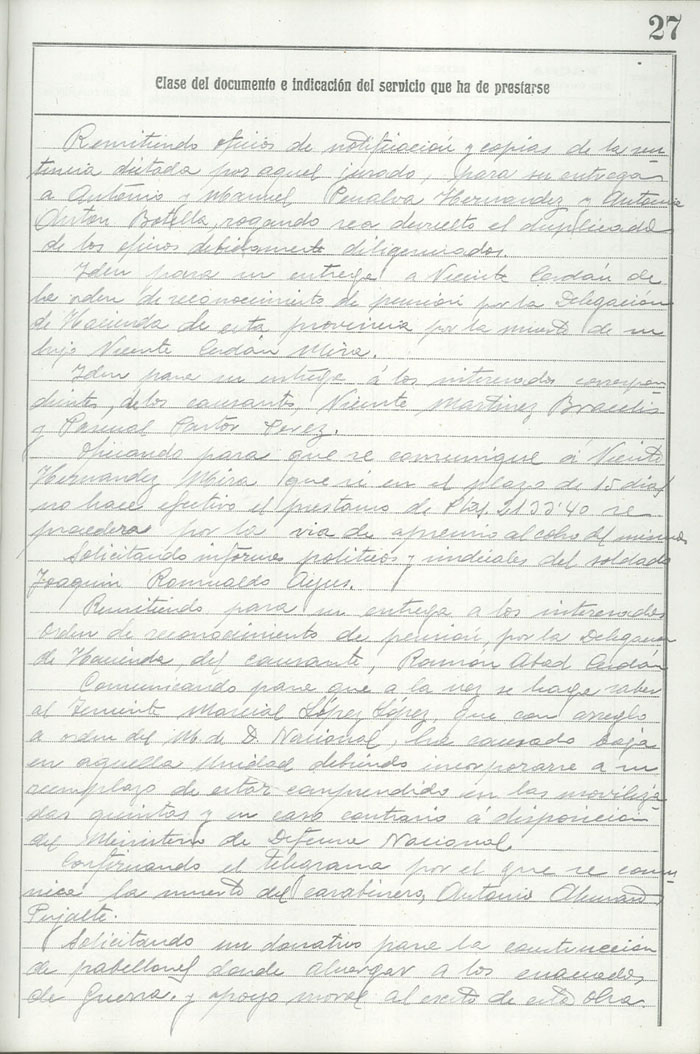 27
Clase del documento e indicación del servicio que ha de prestarse
Remitiendo oficios de notificación y copias de la sen-
tencia dictada por aquel jurado, para su entrega
a Antonio y Manuel Penalva Hernandez y Antonia
Anton Botella, rogando sea devuelto el duplicado
de los oficios debidamente diligenciados.
Idem para su entrega a Vicente Cerdán de
la orden de reconocimiento de pensión por la Delegación
de Hacienda de esta provincia por la muerte de su
hijo Vicente Cerdán Mira.
Idem para su entrega á los interesados correspon-
dientes, de los causantes, Vicente Martinez
y Pascual Pastor Perez.
Oficiando para que se comunique á Vicente
Hernandez Mira que si en el plazo de 15 dias
no hace efectivo el prestamo de Ptas. 2132'40 se
procedera por la via de apremio al cobro del mismo
Solicitando informes politicos y sindicales del soldado
Joaquin Romualdo
Remitiendo para su entrega a los interesados
orden de reconocimiento de pension, por la Delegacion
de Hacienda del causante, Ramón Abad Cerdán
Comunicando para que a la vez se haga saber
al Teniente Marcial López López, que con arreglo
a orden del M. de D. Nacional, ha causado baja
en aquella Unidad debiendo incorporarse a su
reemplazo de estar comprendido en las moviliza-
das quintas y en caso contrario á disposicion
del Ministerio de Defensa Nacional.
Confirmando el telegrama por el que se comu-
nica la muerte del carabinero, Antonio Alemañ
Pujalte.
Solicitando un donativo para la construccion
de pabellones donde alvergar a los evacuados
de Guerra, y apoyo moral al exito de esta obra.